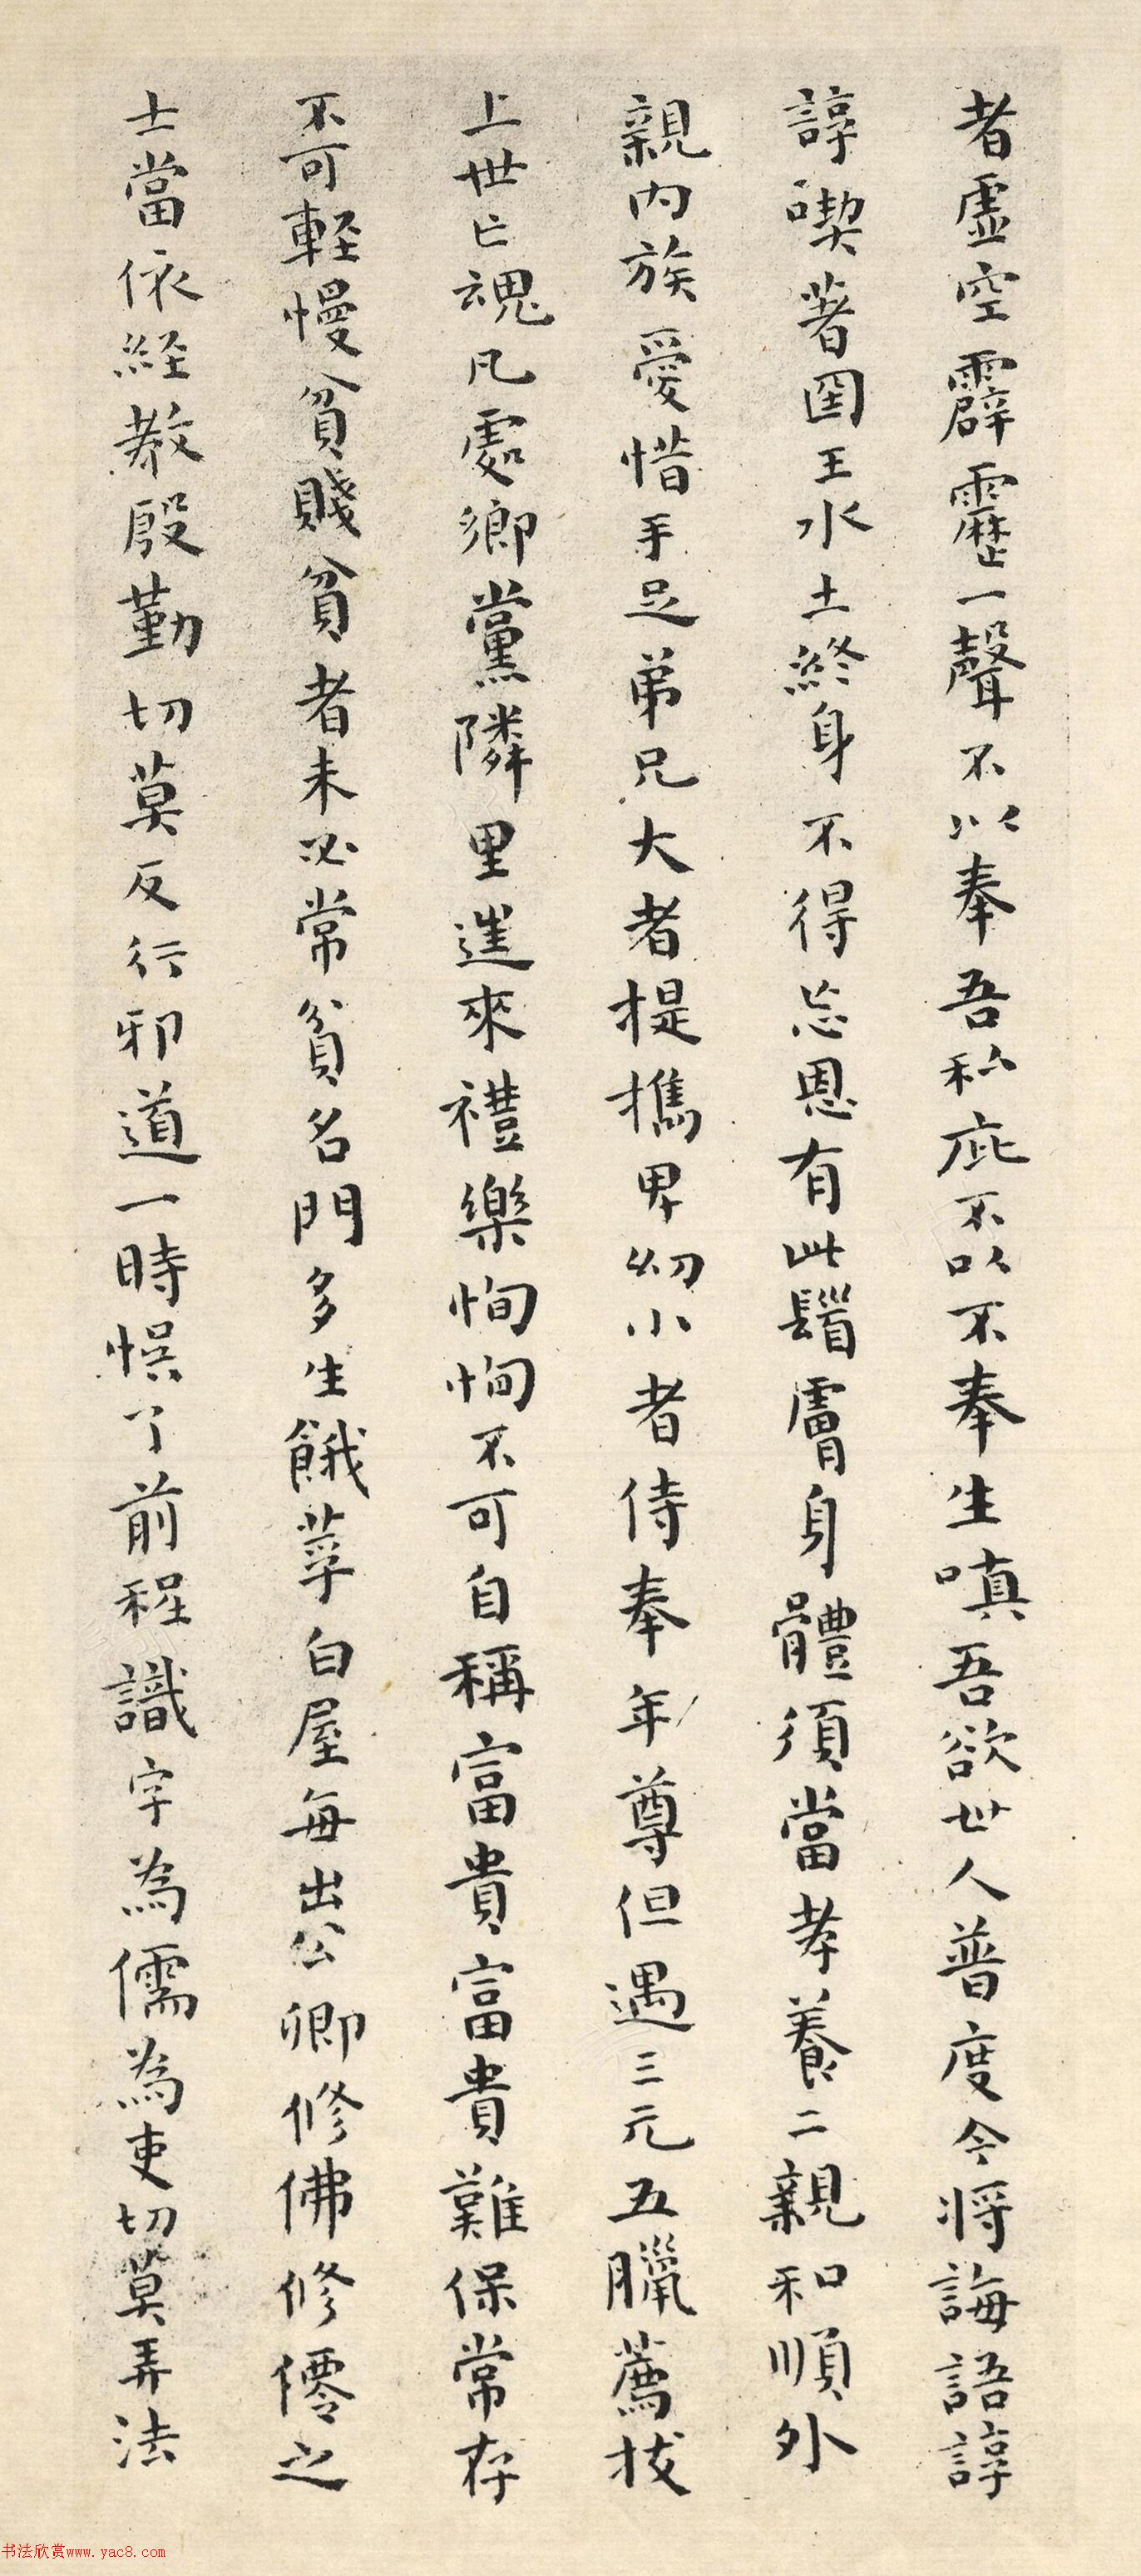 者虛空霹靂一聲不以奉吾私庇不以不奉生嗔吾欲世人普度今將誨語諄
諄喫著國王水土終身不得忘恩有此髭膚身體須當孝養二親和順外
親內族愛惜手足弟兄大者提攜卑幼小者侍奉年尊但遇三元五臘薦拔
上世亡魂凡處鄉黨隣里進來禮樂恂恂不可自稱富貴富貴難保常存
不可輕慢貧賤貧者未必常貧名門多生餓莩白屋每出公卿修佛修僊之
士當依經教殷勤切莫反行邪道一時悞了前程識字為儒為吏切莫弄法
书法欣赏www.yac8.com